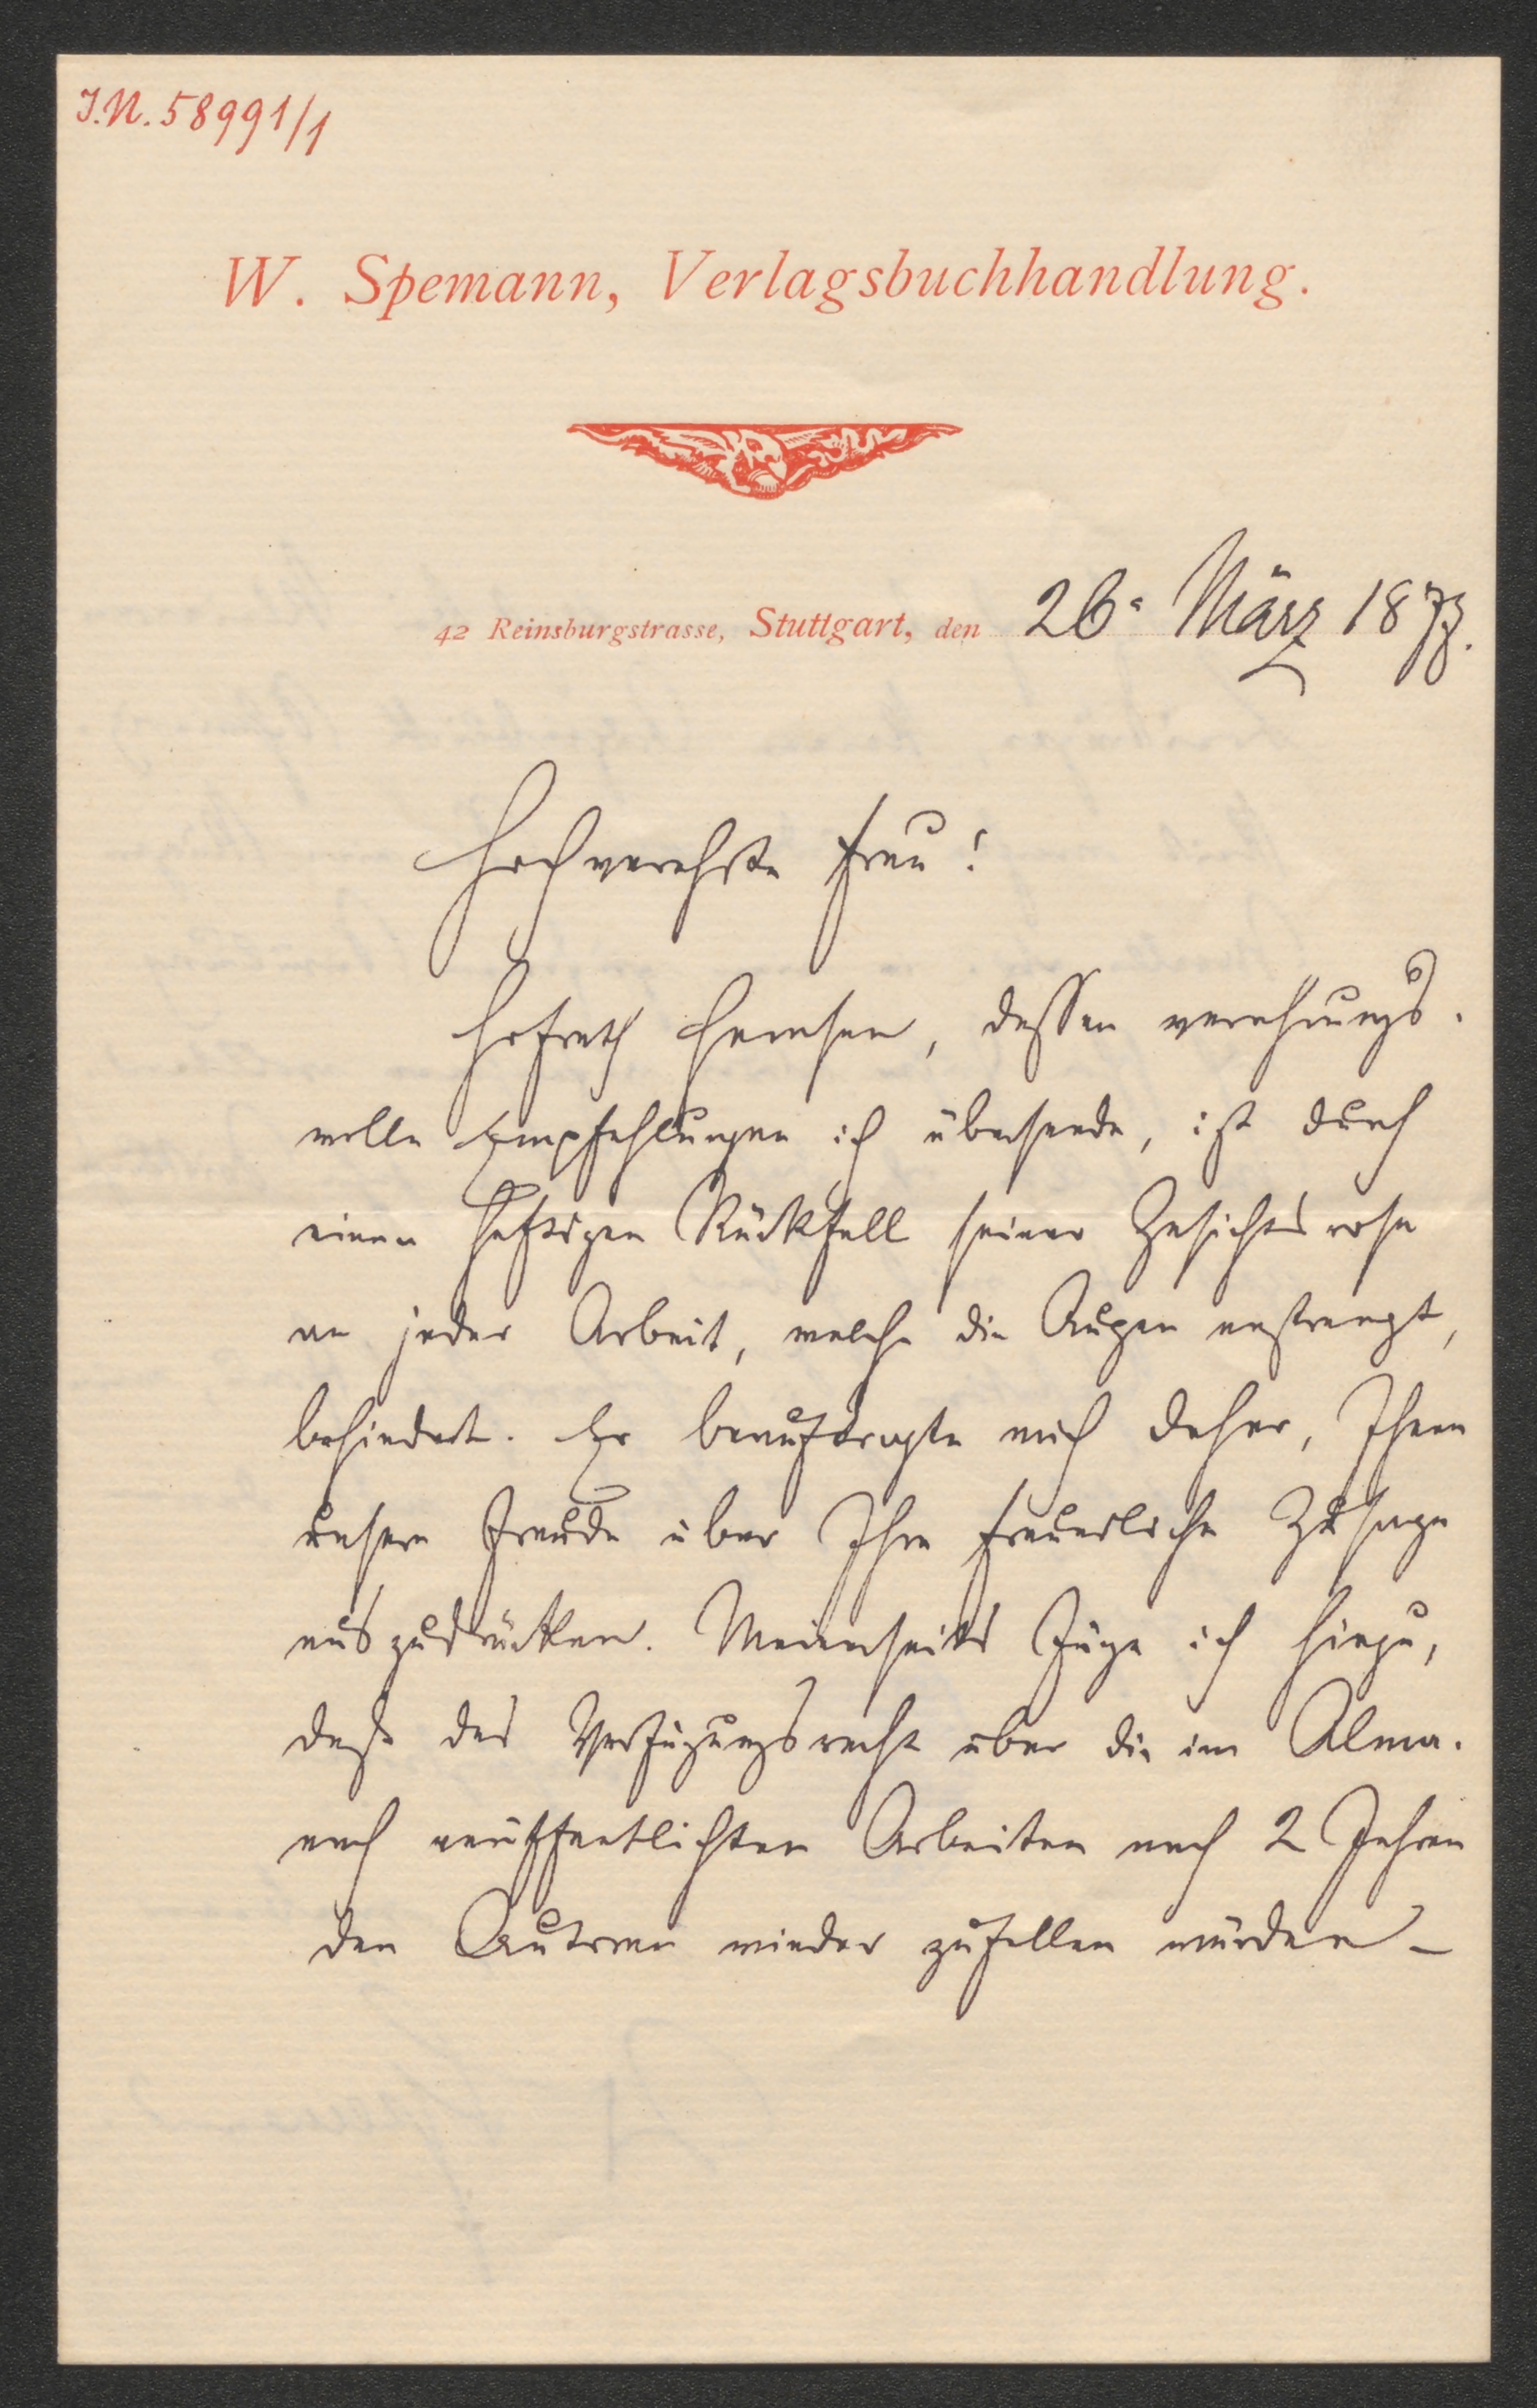 I.N. 58991/1
W. Spemann, Verlagsbuchhandlung.
42 Reinsburgstrasse, Stuttgart, den 26. März 1877.
Hochverehrte Frau!
Hofrath Hemsen, dessen verehrungs-
volle Empfehlungen ich übersende, ist durch
einen heftigen Rückfall seiner Gesichtsrose
an jeder Arbeit, welche die Augen anstrengt,
behindert. Er beauftragte mich daher, Ihnen
unsere Freude über Ihre freundliche Zusage
auszudrücken. Meinerseits füge ich hinzu,
daß das Verfügungsrecht über die im Alma-
nach veröffentlichten Arbeiten nach 2 Jahren
den Autoren wieder zufallen würde –